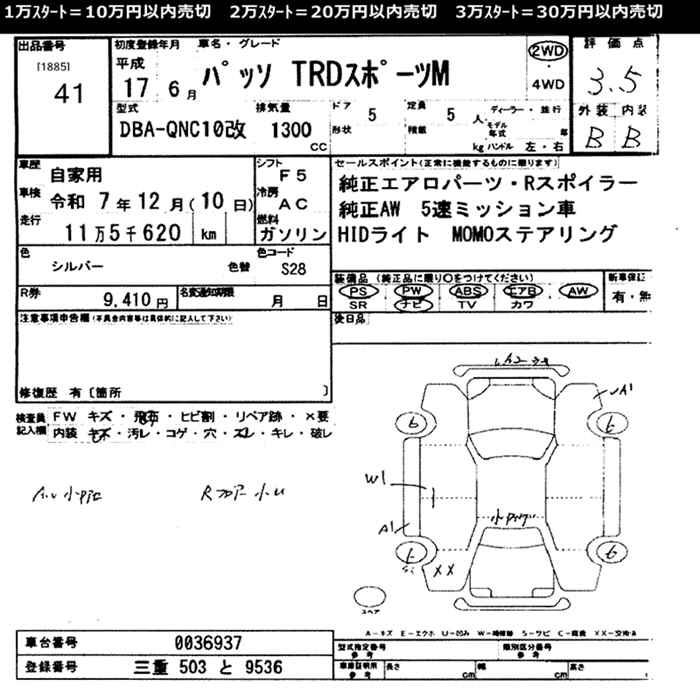 1万スタート＝10万円以内売切 2万スタート＝20万円以内売切 3万スタート＝30万円以内売切
出品番号
[1885]
41
初度登録年月
平成
17 6月
車名・グレード
パッソ TRDスポーツM
2WD
・
4WD
評価点
3.5
外装 内装
B B
型式
DBA-QNC10改
排気量
1300
CC
ドア 5
形状
定員 5 人
積載 kg
ディーラー・並行
モデル年式 年
ハンドル 左・右
車歴
自家用
車検
令和 7年 12月(10日)
走行
11万5千620 km
シフト
F5
冷房
AC
燃料
ガソリン
色
シルバー
色替
色コード
S28
R券
9,410円
名変通知期限
月 日
セールスポイント(正常に機能するものに限ります)
純正エアロパーツ・Rスポイラー
純正AW 5速ミッション車
HIDライト MOMOステアリング
装備品 (純正品に限り○をつけてください)
PS・PW・ABS・エアB・AW
SR ナビ TV カワ
新車保証
有・無
後日品
注意事項申告欄(不具合内容等は具体的に記入して下さい)
修復歴 有〔箇所 〕
検査員
記入欄
FW キズ・飛石・ヒビ割・リペア跡・×要
内装 キズ・汚レ・コゲ・穴・スレ・キレ・破レ
A2
A1
W1
A1
XX
スペア
A－キズ E－エクボ U－凹み W－補修跡 S－サビ C－腐食 XX－交換済
車台番号 0036937
登録番号 三重 503 と 9536
型式指定番号
参考
類別区分番号
参考
車庫証明用
参考
長さ cm
幅 cm
高さ